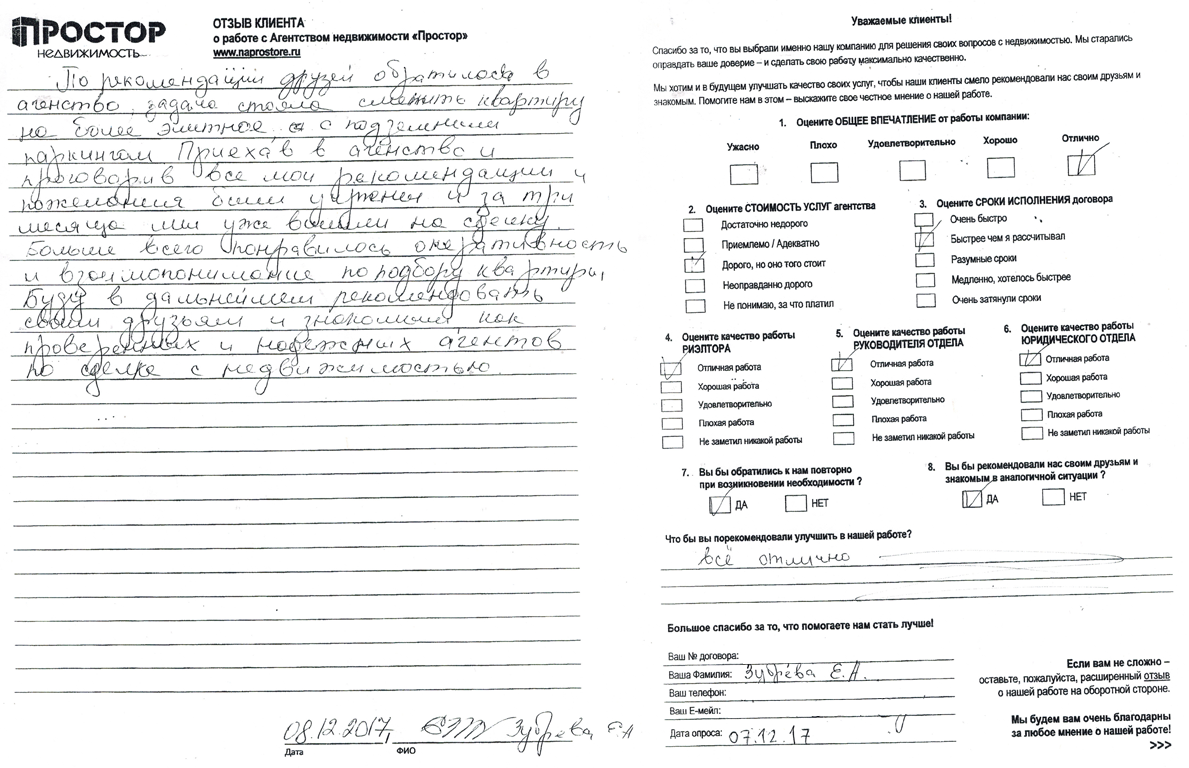 ПРОСТОР
НЕДВИЖИМОСТЬ
ОТЗЫВ КЛИЕНТА
о работе с Агентством недвижимости «Простор»
www.naprostore.ru
По рекомендации друзей обратилась в
агенство, задача стояла сменить квартиру
на более элитное с подземным
паркингом. Приехав в агенство и
проговорив все мои рекомендации и
пожелания были учтены и за три
месяца мы уже вышли на сделку.
Больше всего понравилось оперативность
и взаимопонимание по подбору квартиры,
Буду в дальнейшем рекомендовать
своим друзьям и знакомым как
проверенных и надежных агентов
по сделке с недвижимостью.
08.12.2017, Зубрева, Е.А
Дата ФИО
Уважаемые клиенты!
Спасибо за то, что вы выбрали именно нашу компанию для решения своих вопросов с недвижимостью. Мы старались
оправдать ваше доверие – и сделать свою работу максимально качественно.
Мы хотим и в будущем улучшать качество своих услуг, чтобы наши клиенты смело рекомендовали нас своим друзьям и
знакомым. Помогите нам в этом – выскажите свое честное мнение о нашей работе.
1. Оцените ОБЩЕЕ ВПЕЧАТЛЕНИЕ от работы компании:
Ужасно Плохо Удовлетворительно Хорошо Отлично
2. Оцените СТОИМОСТЬ УСЛУГ агентства
Достаточно недорого
Приемлемо / Адекватно
Дорого, но оно того стоит
Неоправданно дорого
Не понимаю, за что платил
3. Оцените СРОКИ ИСПОЛНЕНИЯ договора
Очень быстро
Быстрее чем я рассчитывал
Разумные сроки
Медленно, хотелось быстрее
Очень затянули сроки
4. Оцените качество работы
РИЭЛТОРА
Отличная работа
Хорошая работа
Удовлетворительно
Плохая работа
Не заметил никакой работы
5. Оцените качество работы
РУКОВОДИТЕЛЯ ОТДЕЛА
Отличная работа
Хорошая работа
Удовлетворительно
Плохая работа
Не заметил никакой работы
6. Оцените качество работы
ЮРИДИЧЕСКОГО ОТДЕЛА
Отличная работа
Хорошая работа
Удовлетворительно
Плохая работа
Не заметил никакой работы
7. Вы бы обратились к нам повторно
при возникновении необходимости ?
ДА НЕТ
8. Вы бы рекомендовали нас своим друзьям и
знакомым в аналогичной ситуации ?
ДА НЕТ
Что бы вы порекомендовали улучшить в нашей работе?
всё отлично
Большое спасибо за то, что помогаете нам стать лучше!
Ваш № договора:
Ваша Фамилия: Зубрева Е.А.
Ваш телефон:
Ваш Е-мейл:
Дата опроса: 07.12.17
Если вам не сложно –
оставьте, пожалуйста, расширенный отзыв
о нашей работе на оборотной стороне.
Мы будем вам очень благодарны
за любое мнение о нашей работе!
>>>